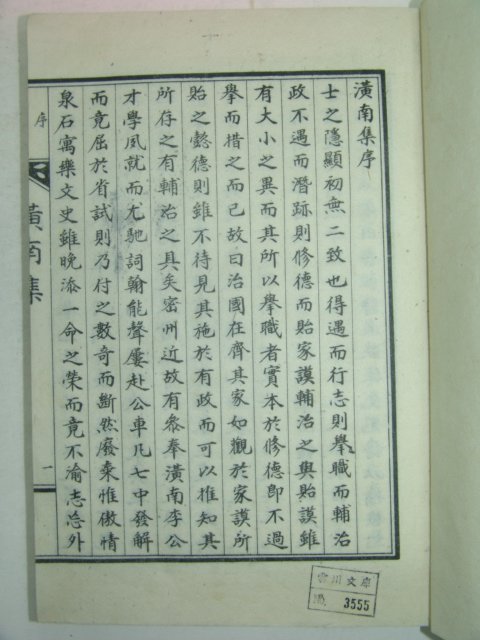 潢南集序
士之隱顯初無二致也得遇而行志則擧職而輔治
政不遇而潛跡則修德而貽家謨輔治之與貽謨雖
有大小之異而其所以擧職者實本於修德卽不過
擧而措之而已故曰治國在齊其家如觀於家謨所
貽之懿德則雖不待見其施於有政而可以推知其
所存之有輔治之具矣密州近故有叅奉潢南李公
才學夙就而尤馳詞翰能聲屢赴公車凡七中發解
而竟屈於省試則乃付之數奇而斷然廢棄惟傲情
泉石寓樂文史雖晩添一命之榮而竟不渝志𢗅外
序
潢南集
一
雲川文庫
3555